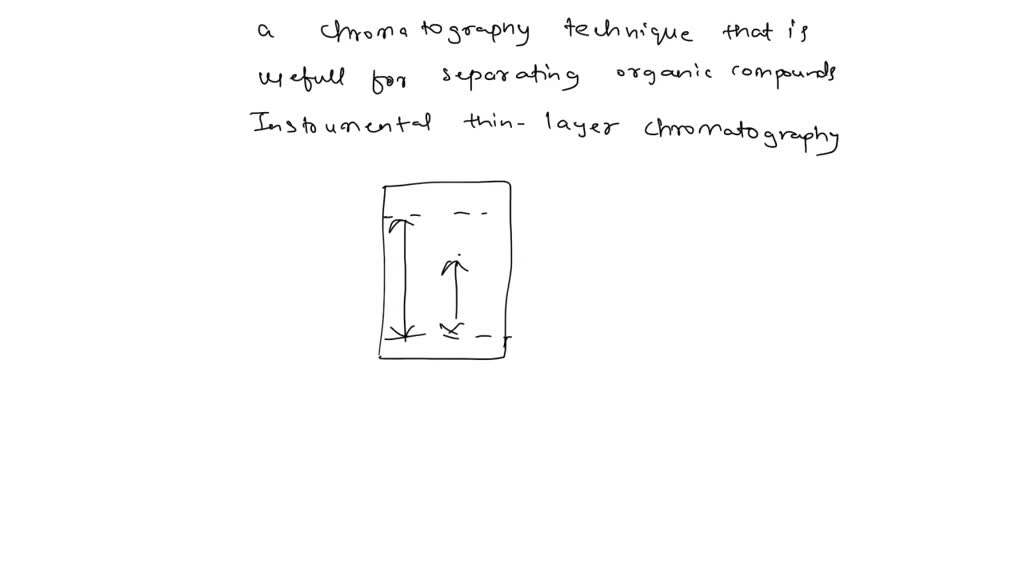 a chromatography technique that is
usefull for separating organic compounds
Instoumental thin-layer chromatography